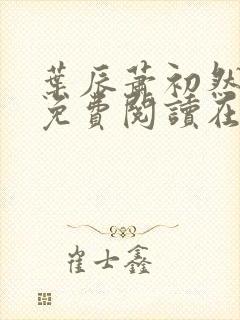 葉辰蕭初然
免費閱讀在
崔士鑫